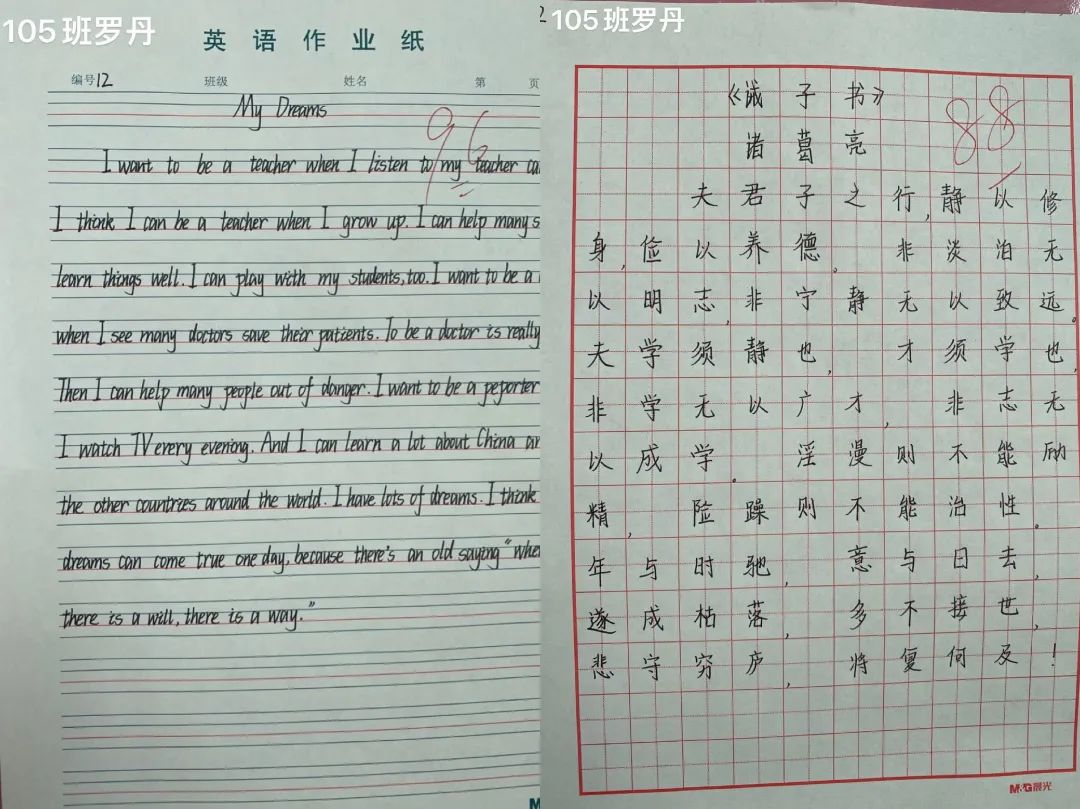 105班罗丹
英语作业纸
编号12 班级 姓名 第 页
My Dreams
96
I want to be a teacher when I listen to my teacher
I think I can be a teacher when I grow up. I can help many
learn things well. I can play with my students, too. I want to be a
when I see many doctors save their patients. To be a doctor is really
Then I can help many people out of danger. I want to be a peporter
I watch TV erery evening. And I can learn a lot about China
the other countries around the world. I have lots of dreams. I think
dreams can come true one day, because there's an old saying "
there is a will, there is a way."
105班罗丹
《诫子书》
88
诸葛亮
夫君子之行,静以修
身,俭以养德。非淡泊无
以明志,非宁静无以致远。
夫学须静也,才须学也,
非学无以广才,非志无
以成学。淫漫则不能励
精,险躁则不能治性。
年与时驰,意与日去,
遂成枯落,多不接世,
悲守穷庐,将复何及!
M&G晨光